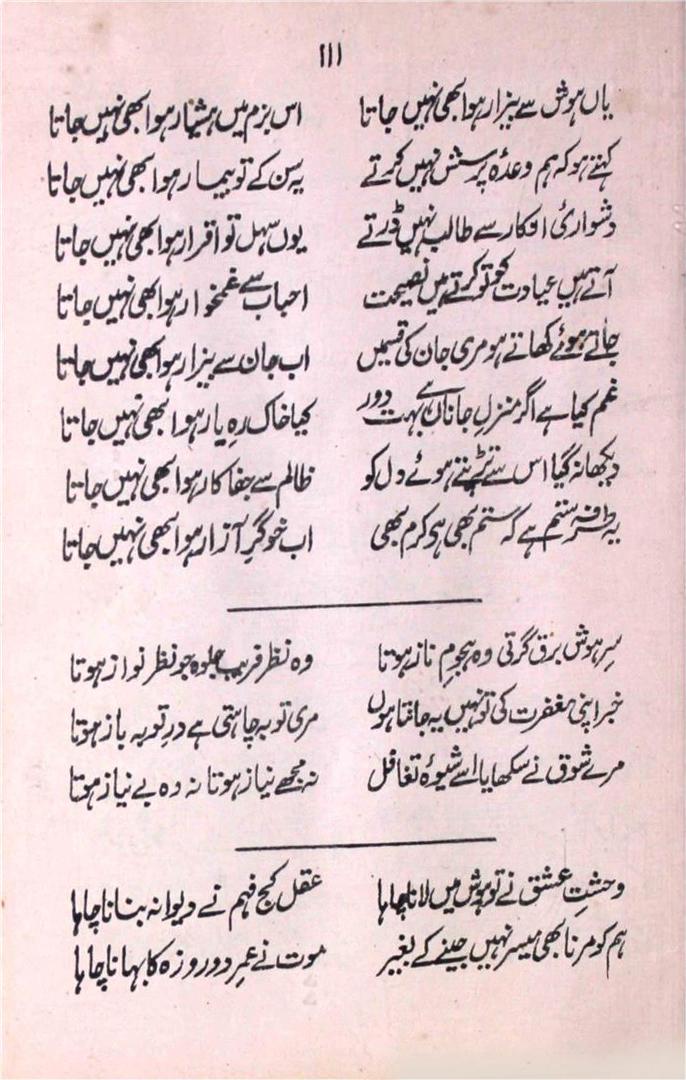 ۱۱۱
یاں ہوش سے بیزار ہوا بھی نہیں جاتا اس بزم میں ہشیار ہوا بھی نہیں جاتا
کہتے ہو کہ ہم وعدۂ پرسش نہیں کرتے یہ سن کے تو بیمار ہوا بھی نہیں جاتا
دشواریٔ انکار سے طالب نہیں ڈرتے یوں سہل تو اقرار ہوا بھی نہیں جاتا
آتے ہیں عیادت کو تو کرتے ہیں نصیحت احباب سے غمخوار ہوا بھی نہیں جاتا
جاتے ہوئے کھاتے ہو مری جان کی قسمیں اب جان سے بیزار ہوا بھی نہیں جاتا
غم کیا ہے اگر منزلِ جاناں ہے بہت دور کیا خاک رہِ یار ہوا بھی نہیں جاتا
دیکھا نہ گیا اس سے تڑپتے ہوئے دل کو ظالم سے جفاکار ہوا بھی نہیں جاتا
یہ طرفہ ستم ہے کہ ستم بھی ہو کرم بھی اب خوگرِ آزار ہوا بھی نہیں جاتا
سرِ ہوش برق گرتی وہ ہجومِ ناز ہوتا وہ نظر فریب جلوہ جو نظر نواز ہوتا
خبر اپنی مغفرت کی تو نہیں یہ جانتا ہوں مری توبہ چاہتی ہے درِ توبہ باز ہوتا
مرے شوق نے سکھایا اسے شیوۂ تغافل نہ مجھے نیاز ہوتا نہ وہ بے نیاز ہوتا
وحشتِ عشق نے تو ہوش میں لانا چاہا عقل کج فہم نے دیوانہ بنانا چاہا
ہم کو مرنا بھی میسر نہیں جینے کے بغیر موت نے عمرِ دو روزہ کا بہانا چاہا